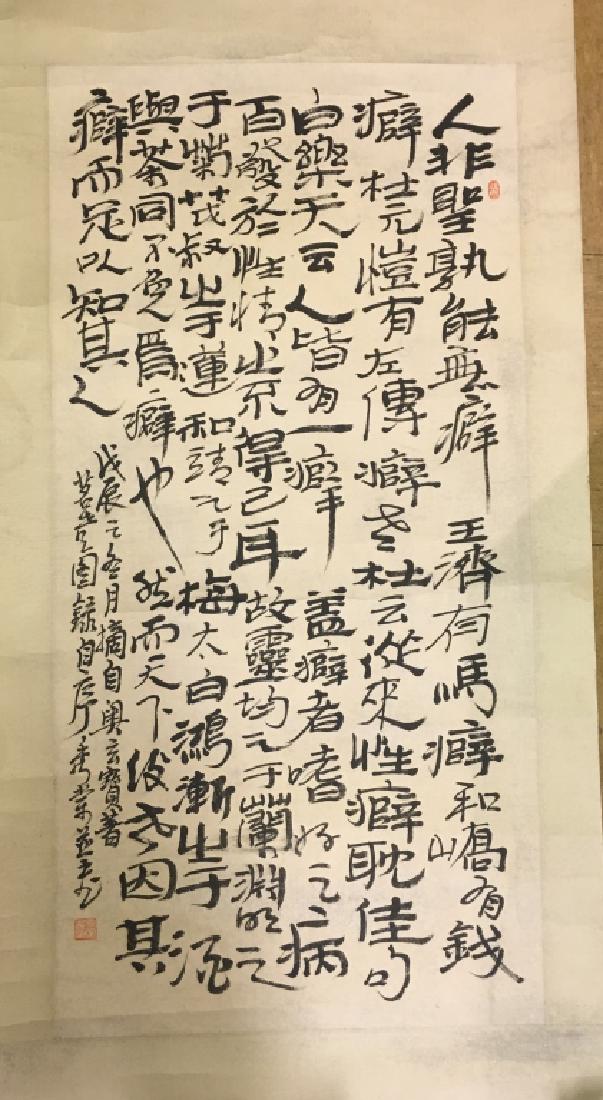 人非聖孰能無癖 王濟有馬癖和嶠有錢
癖杜元愷有左傳癖老杜云從來性癖耽佳句
白樂天云人皆有一癖 蓋癖者嗜好之病
百發於性情之不得已耳故靈均之于蘭淵明之
于菊茂叔之于蓮和靖之于梅太白鴻漸之于酒
與茶同不免爲癖也 然而天下後世因其
癖而足以知其人
戊辰之冬月摘自奥玄寶著
茗壺圖錄自序